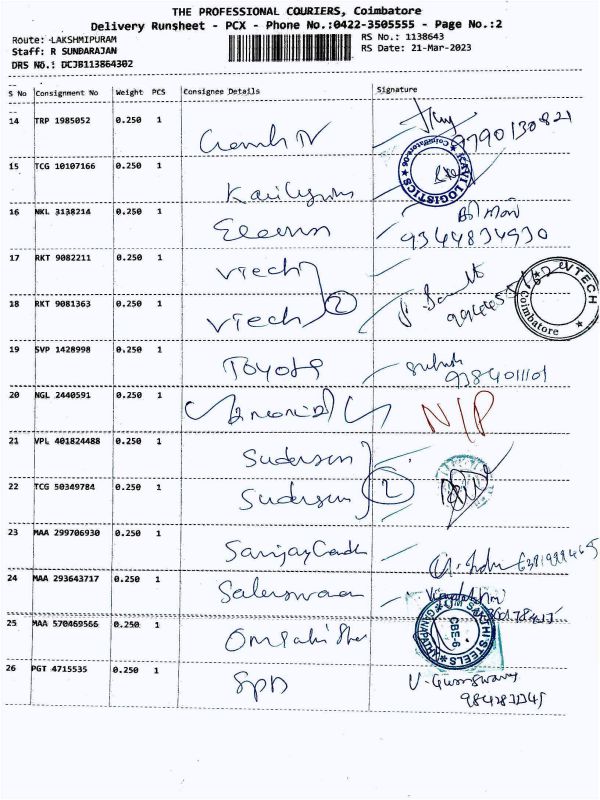 THE PROFESSIONAL COURIERS, Coimbatore
Delivery Runsheet - PCX - Phone No.:0422-3505555 - Page No.:2
Route: LAKSHMIPURAM RS No.: 1138643
Staff: R SUNDARAJAN RS Date: 21-Mar-2023
DRS No.: DCJB113864302
S No Consignment No Weight PCS Consignee Details Signature
14 TRP 1985052 0.250 1
9790130821
15 TCG 10107166 0.250 1 KAVI LOGISTICS Coimbatore-06
16 NKL 3138214 0.250 1
9344834930
17 RKT 9082211 0.250 1 Vtech
VTECH Coimbatore
18 RKT 9081363 0.250 1 Vtech 2
19 SVP 1428998 0.250 1 Toyota
9384011101
20 NGL 2440591 0.250 1 N/P
21 VPL 401824488 0.250 1 Sudersen
22 TCG 50349784 0.250 1 Sudersen 2
23 MAA 299706930 0.250 1
24 MAA 293643717 0.250 1
25 MAA 570469566 0.250 1 Om Sakthi
OM SAKTHI STEELS GANAPATHY CBE-6
26 PGT 4715535 0.250 1 SPB